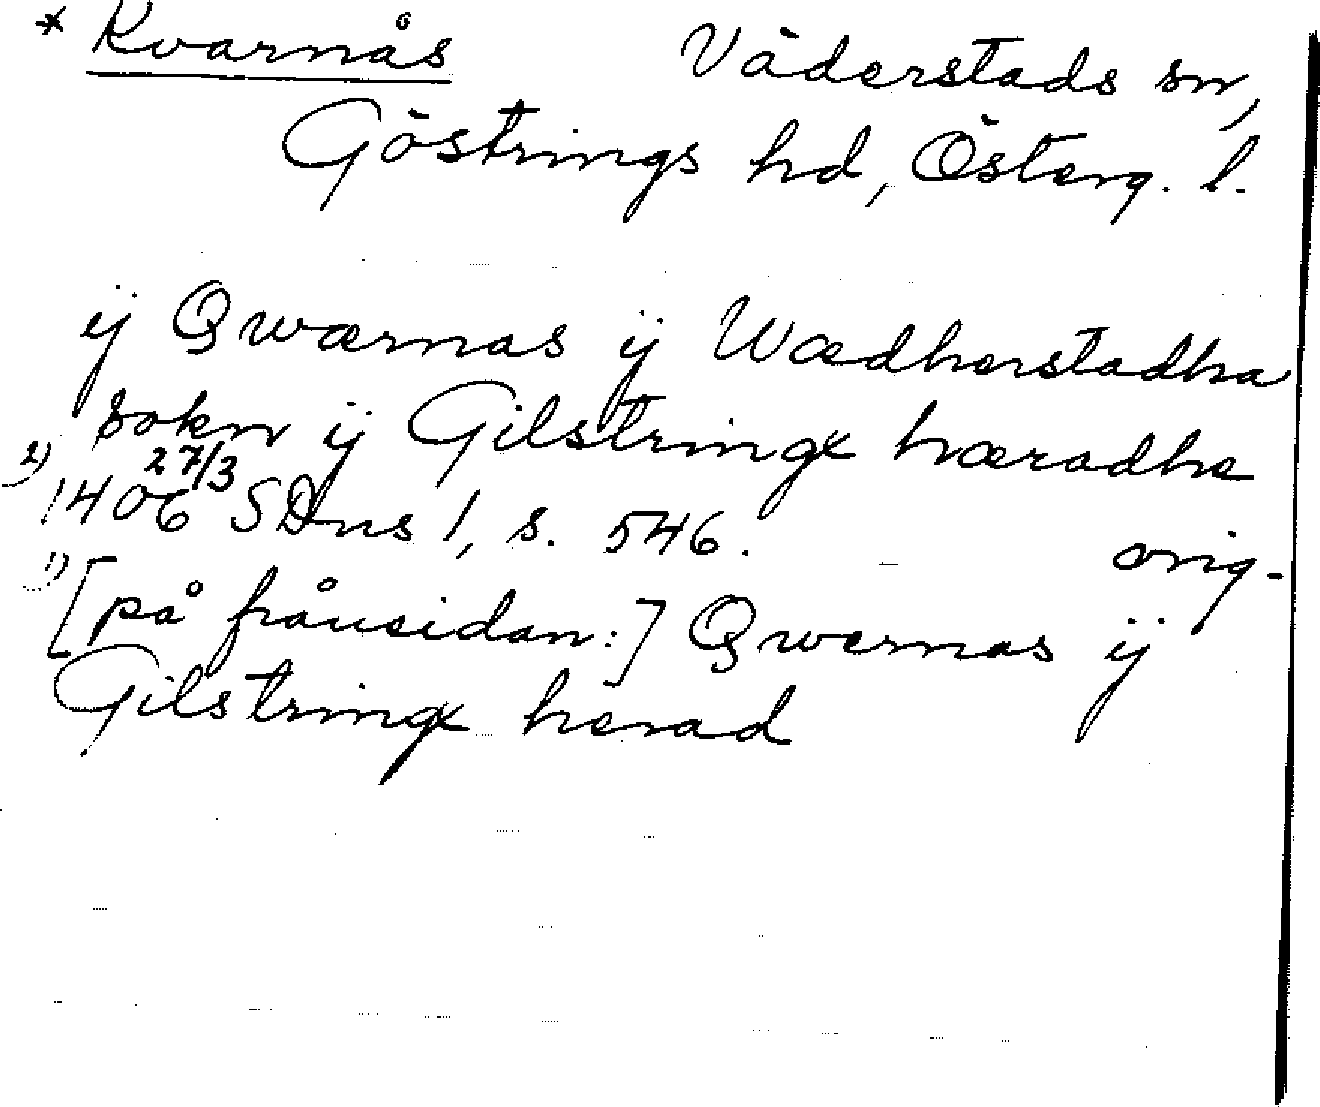 * Kvarnås Väderstads sn,
Göstrings hd, Österg. l.
ÿ Qwærnas ÿ Wædherstadha
sokn ÿ Gilstringx hæradhe
1) 1406 27/3 SDns 1, s. 546. orig.
1) [på frånsidan:] Qwernas ÿ
Gilstringx herad